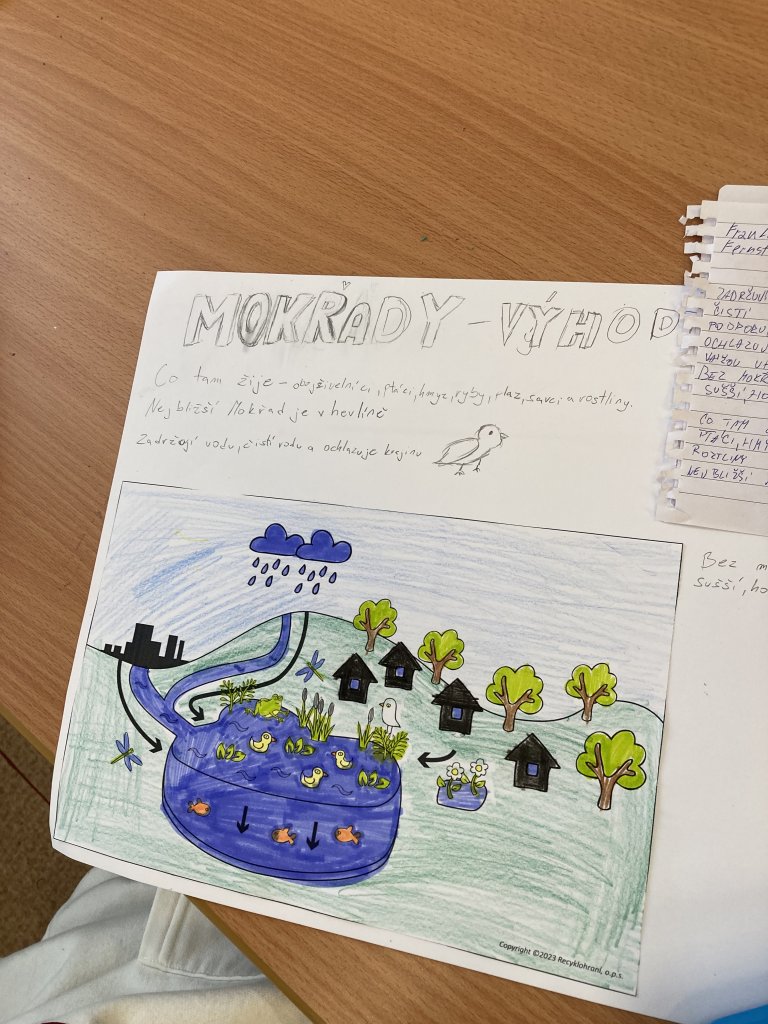 MOKŘADY - VÝHOD
Co tam žije - obojživelníci, ptáci, hmyz, ryby, plaz, savci a rostliny.
Nejbližší Mokřad je v hevlíně
Zadržují vodu, čistí vodu a ochlazuje krajinu
Copyright ©2023 Recyklohraní, o.p.s.
Frant
Fernst
ZADRŽUNÍ
ČISTÍ
PODPORU
OCHLAZUJ
BEZ MOKŘ
SUŠŠÍ, HO
CO TAM
PTÁCI, HMY
ROSTLINY
NEJBLIŽŠÍ
Bez m
sušší, ho